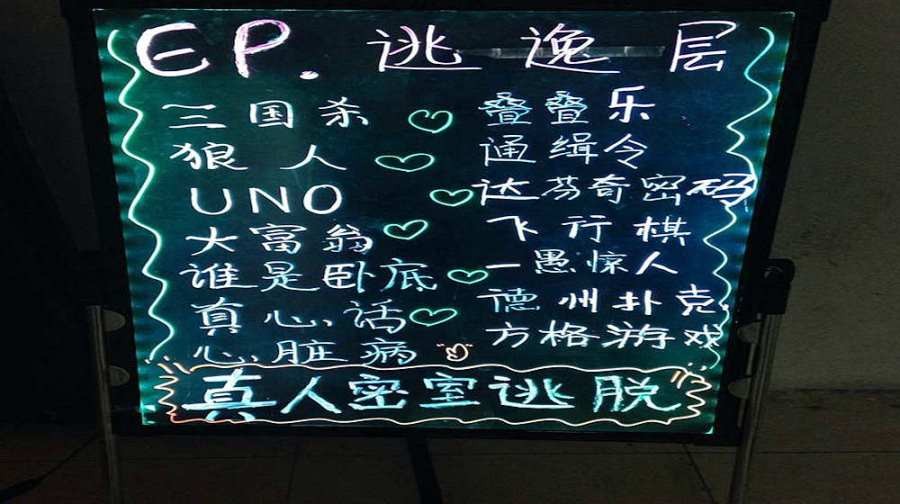 EP. 逃逸层
三国杀 叠叠乐
狼人 通缉令
UNO 达芬奇密码
大富翁 飞行棋
谁是卧底 一愚惊人
真心话 德州扑克
心脏病 方格游戏
真人密室逃脱